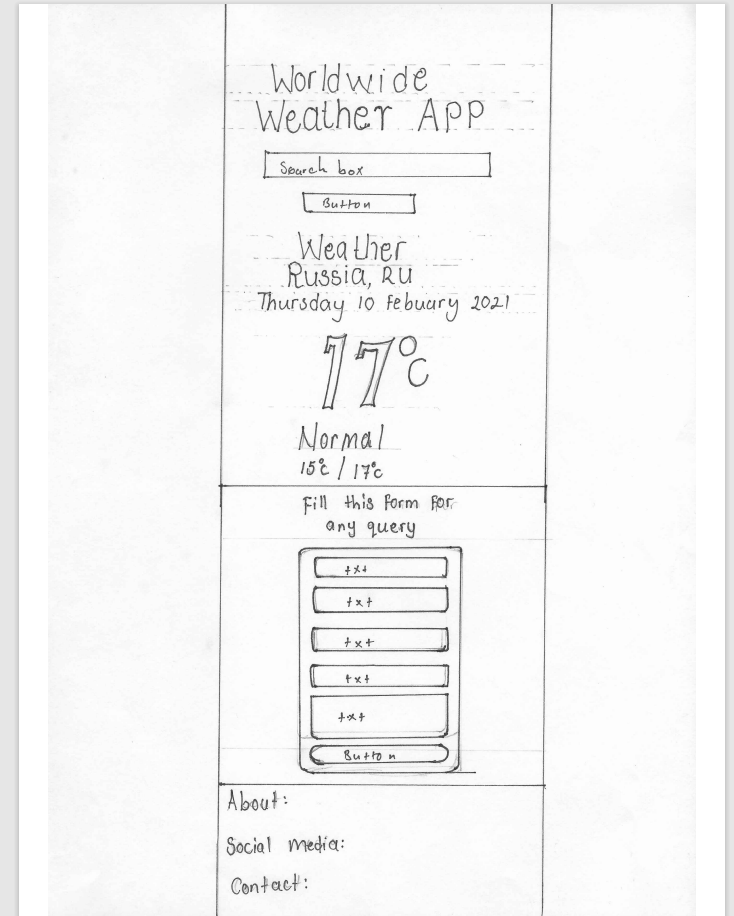 Worldwide
Weather App
Search box
Button
Weather
Russia, RU
Thursday 10 Febuary 2021
17°C
Normal
15°C / 17°C
Fill this form for
any query
txt
txt
txt
txt
txt
Button
About:
Social media:
Contact: